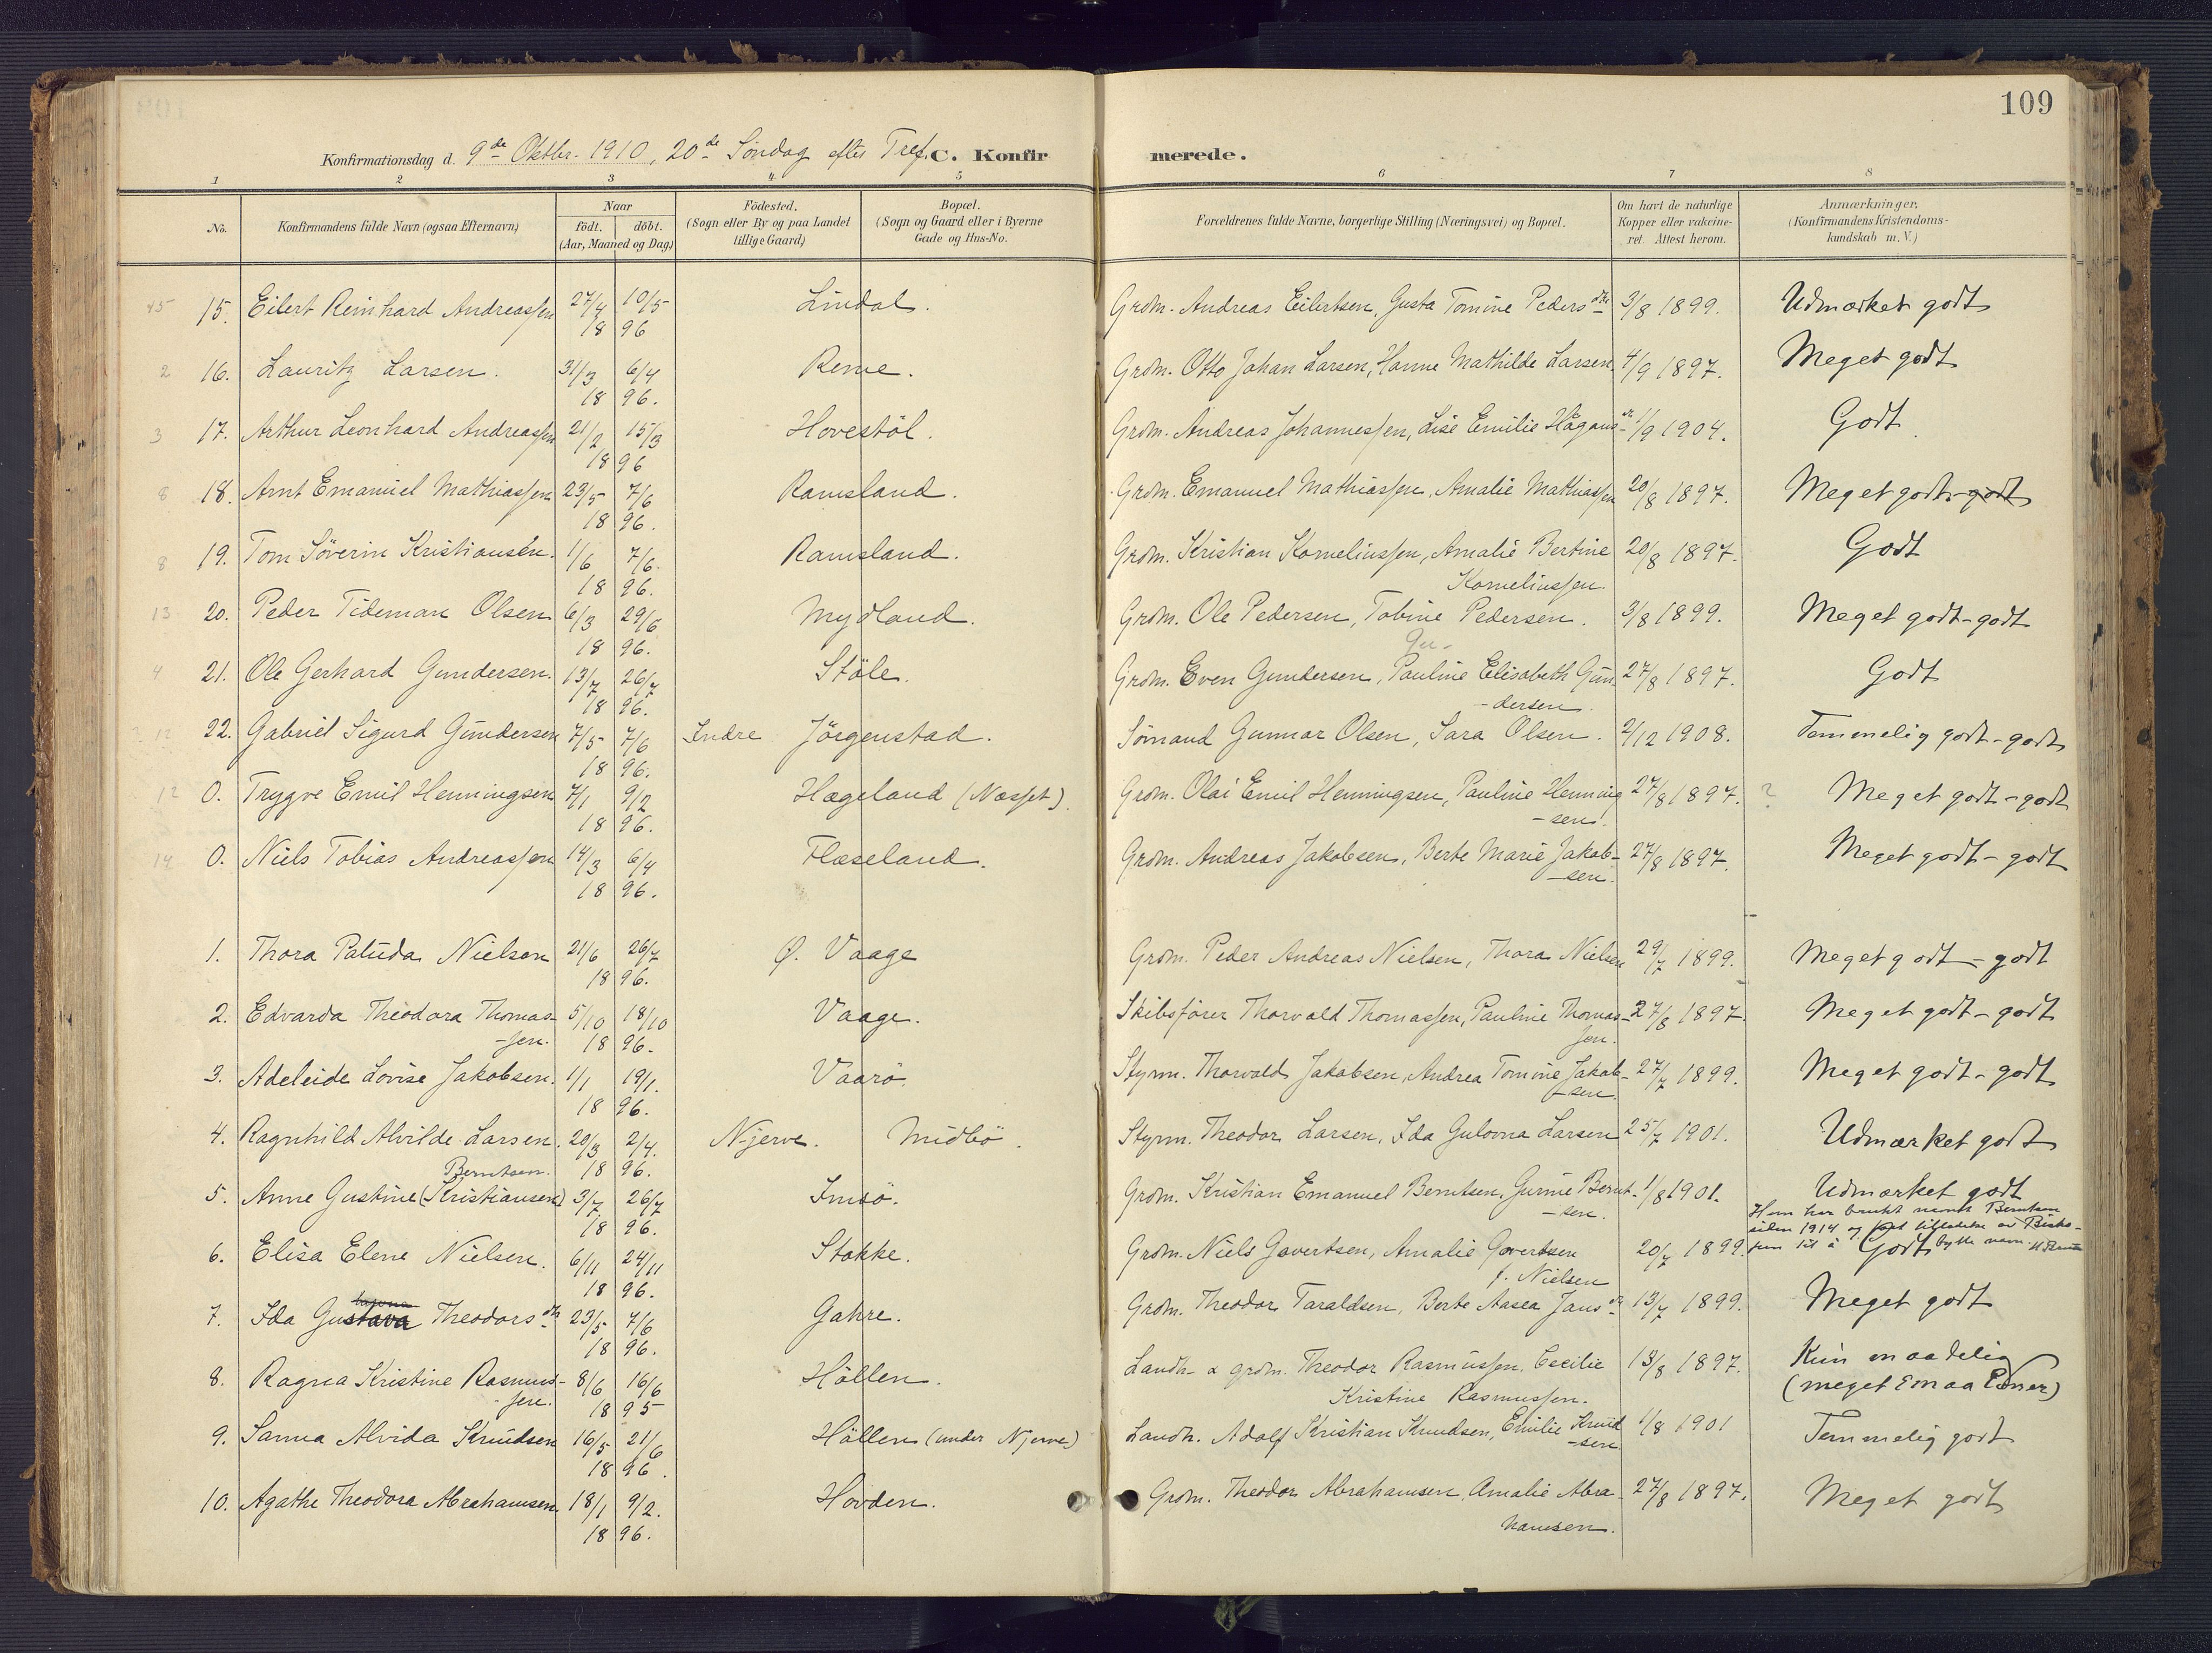 109
Konfirmationsdag d. 9de Oktbr. 1910, 20de Söndag efter Tref. C. Konfirmerede.
1 2 3 4 5 6 7 8
No. Konfirmandens fulde Navn (ogsaa Efternavn) Naar födt. döbt. (Aar, Maaned og Dag) Födested. (Sogn eller By og paa Landet tillige Gaard) Bopæl. (Sogn og Gaard eller i Byerne Gade og Hus-No. Forældrenes fulde Navne, borgerlige Stilling (Næringsvei) og Bopæl. Om havt de naturlige Kopper eller vakcineret. Attest herom. Anmærkninger. (Konfirmandens Kristendomskundskab m. V.)
15. Eilert Reinhard Andreassen 27/4 10/5 Lindal. Grdm. Andreas Eilertsen, Gusta Tomine Pedersdtr 3/8 1899. Udmærket godt
18 96
16. Lauritz Larsen. 31/3 6/4 Reme. Grdm. Otto Johan Larsen, Hanne Mathilde Larsen 4/9 1897. Meget godt
18 96.
17. Arthur Leonhard Andreassen 21/2 15/3 Hovestöl. Grdm. Andreas Johannessen, Lise Emilie Hågans dr 1/9 1904. Godt
18 96
18. Arnt Emanuel Mathiassen 23/5 7/6 Ramsland. Grdm. Emanuel Mathiassen, Amalie Mathiassen 20/8 1897. Meget godt-godt
18 96.
19. Tom Söverin Kristiansen. 1/6 7/6. Ramsland. Grdm. Kristian Korneliussen, Amalie Bertine 20/8 1897. Godt
18 96. Korneliussen.
20. Peder Tideman Olsen 6/3 29/6 Mydland. Grdm. Ole Pedersen, Tobine Pedersen. 3/8 1899. Meget godt-godt
18 96.
21. Ole Gerhard Gundersen. 13/7 26/7 Ståle. Grdm. Even Gundersen, Pauline Elisabeth Gun- 27/8 1897. Godt
18 96. -dersen.
22. Gabriel Sigurd Gundersen 7/5 7/6 Indre Jörgenstad. Sömand Gunnar Olsen, Sara Olsen. 2/12 1908. Temmelig godt-godt
18 96.
0. Trygve Emil Henningsen 7/1 9/2 Hægeland (Næsset). Grdm. Olai Emil Henningsen, Pauline Henning 27/8 1897. ? Meget godt-godt
18 96. -sen.
0. Niels Tobias Andreassen 14/3 6/4 Flæseland. Grdm. Andreas Jakobsen, Berte Marie Jakob- 27/8 1897. Meget godt-godt
18 96. -sen.
1. Thora Paluda Nielsen 21/6 26/7 Ø. Vaage Grdm. Peder Andreas Nielsen, Thora Nielsen 29/7 1899. Meget godt-godt
18 96.
2. Edvarda Theodora Thomas- 5/10 18/10 Vaage. Skibsförer Thorvald Thomassen, Pauline Thomas- 27/8 1897. Meget godt-godt
-sen. 18 96. sen.
3. Adeleide Lovise Jakobsen. 1/1 19/1. Vaarö. Styrm. Thorvald Jakobsen, Andrea Tomine Jakob- 27/7 1899. Meget godt-godt
18 96. -sen.
4. Ragnhild Alvilde Larsen. 20/3 2/4. Njerve. Midbö. Styrm. Theodor Larsen, Ida Gulovna Larsen 25/7 1901. Udmærket godt
Berntsen. 18 96.
5. Anne Gustine (Kristiansen) 3/7 26/7 Imsö. Grdm. Kristian Emanuel Berntsen, Gurine Bernt- 1/8 1901. Udmærket godt
18 96. -sen. Hun har brukt navnet Berntsen
siden 1914 og
6. Elisa Elene Nielsen. 6/11 24/11 Stokke. Grdm. Niels Govertsen, Amalie Govertsen 20/7 1899. Godt
18 96. f. Nielsen
7. Ida Gustava Theodorsdtr 23/5 7/6 Gahre. Grdm. Theodor Taraldsen, Berte Aasea Jansdr 13/7 1899. Meget godt
18 96.
8. Ragna Kristine Rasmus- 8/6 16/6 Höllen. Landh. & grdm. Theodor Rasmussen, Cecilie 13/8 1897. Kun maadelig
-sen. 18 95 Kristine Rasmussen. (meget smaa Evner)
9. Sanna Alvida Knudsen 16/5 21/6 Höllen (under Njerve) Landh. Adolf Kristian Knudsen, Emilie Knud 1/8 1901 Temmelig godt
18 96. -sen
10. Agathe Theodora Abrahamsen 18/1 9/2. Hovden. Grdm. Theodor Abrahamsen, Amalie Abra- 27/8 1897. Meget godt
18 96. hamsen.